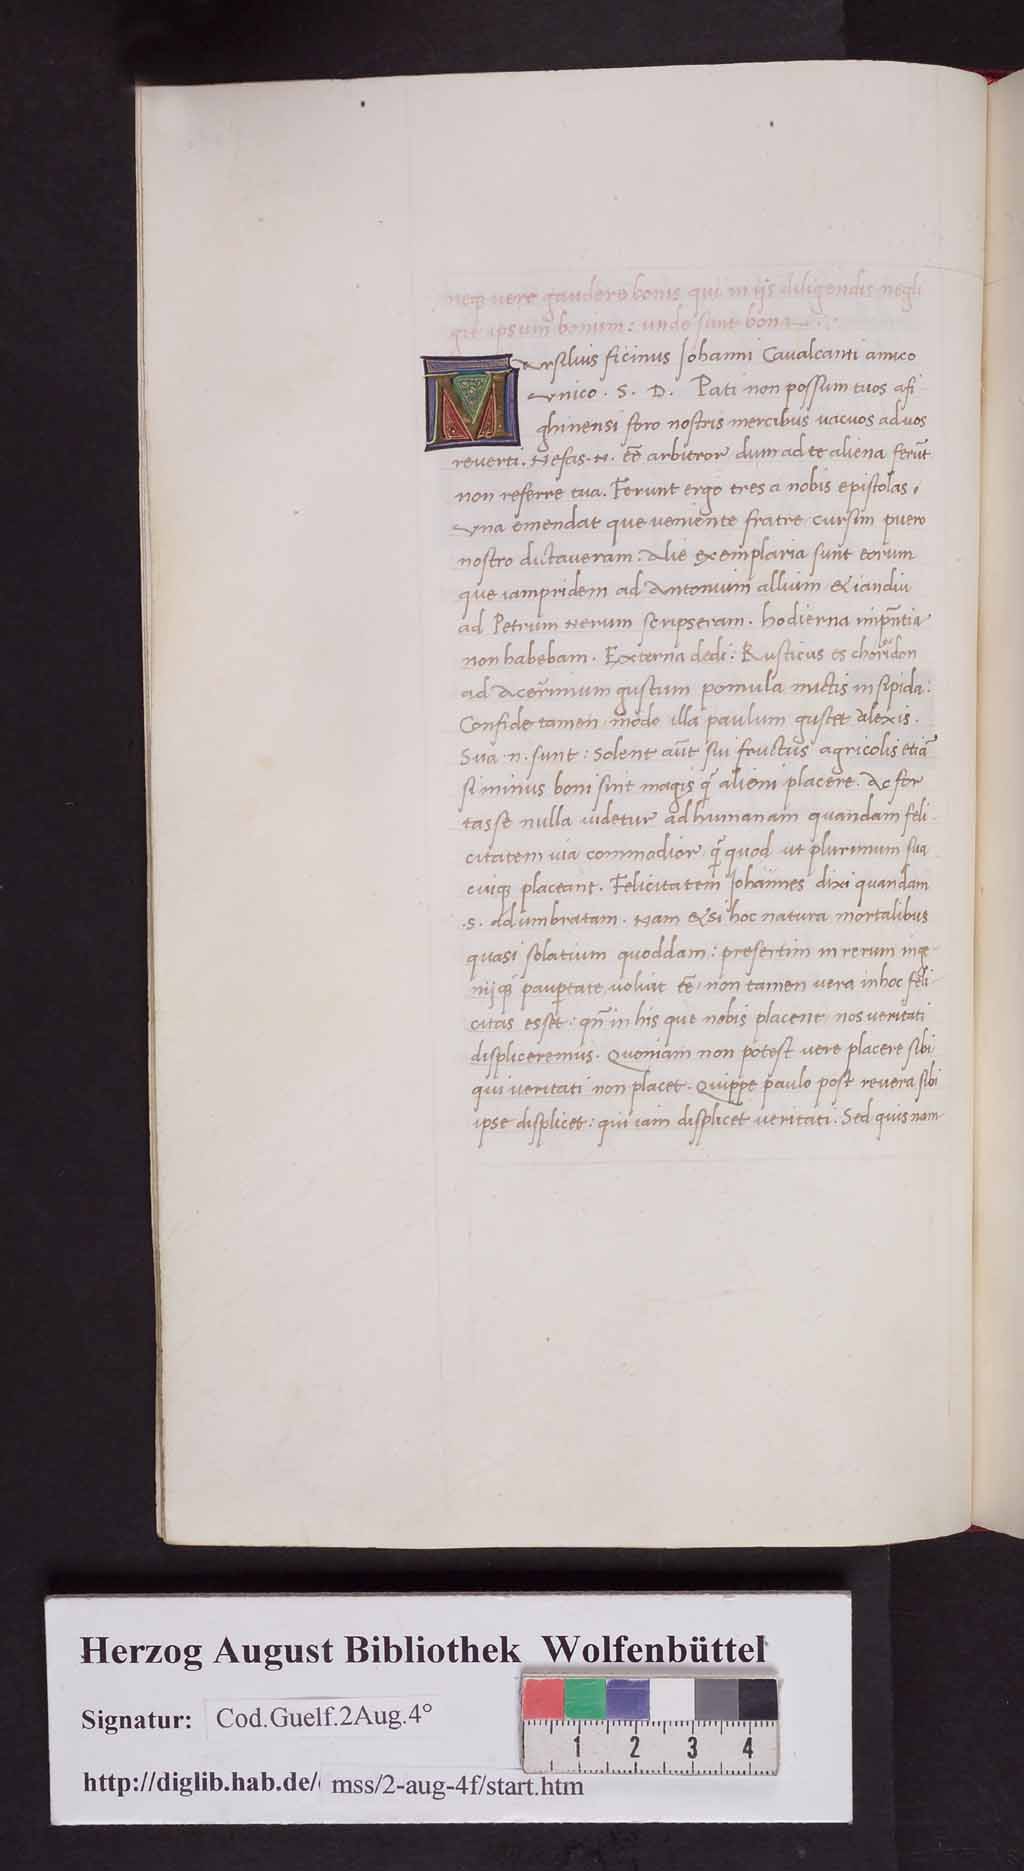 neq3 vere gaudere bonis qui in ijs diligendis negli
git ipsum bonum: unde sunt bona
Marsilius ficinus Johanni Cavalcanti amico
unico. S. D. Pati non possum tuos afi
ghinensi foro nostris mercibus vacuos ad vos
reverti. Nefas. N. eē arbitror dum ad te aliena ferūt
non referre tua. Ferunt ergo tres a nobis epistolas.
una emendat que veniente fratre cursim puero
nostro dictaveram. Alie exemplaria sunt eorum
que iampridem ad Antonium allium & iandiu
ad Petrum Nerum scripseram. hodierna inpn̄tia
non habebam. Externa dedi: Rusticus es choridon
ad acerrimum gustum pomula mictis insipida:
Confide tamen modo illa paulum gustet alexis.
Sua. n. sunt: Solent aūt sui fructus agricolis etiā
si minus boni sint magis q̄ alieni placere. Ac for
tasse nulla videtur ad humanam quandam feli
citatem via commodior q̄ quod ut plurimum sua
cuiq3 placeant. Felicitatem Johannes dixi quandam
.s. adumbratam. Nam & si hoc natura mortalibus
quasi solatium quoddam: presertim in rerum inge
nijq3 paupertate voluit eē, non tamen vera in hoc feli
citas esset: qn̄ in his que nobis placent nos veritati
displiceremus. Quoniam non potest vere placere sibi
qui veritati non placet. Quippe paulo post revera sibi
ipse displicet: qui iam displicet veritati. Sed quisnam
Herzog August Bibliothek Wolfenbüttel
Signatur: Cod.Guelf.2Aug.4°
http://diglib.hab.de/ mss/2-aug-4f/start.htm
1 2 3 4